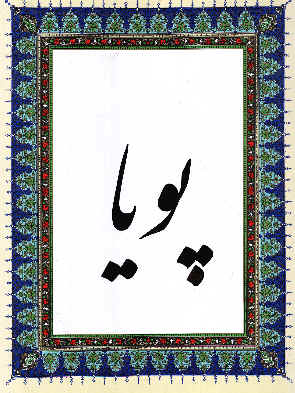 پویا